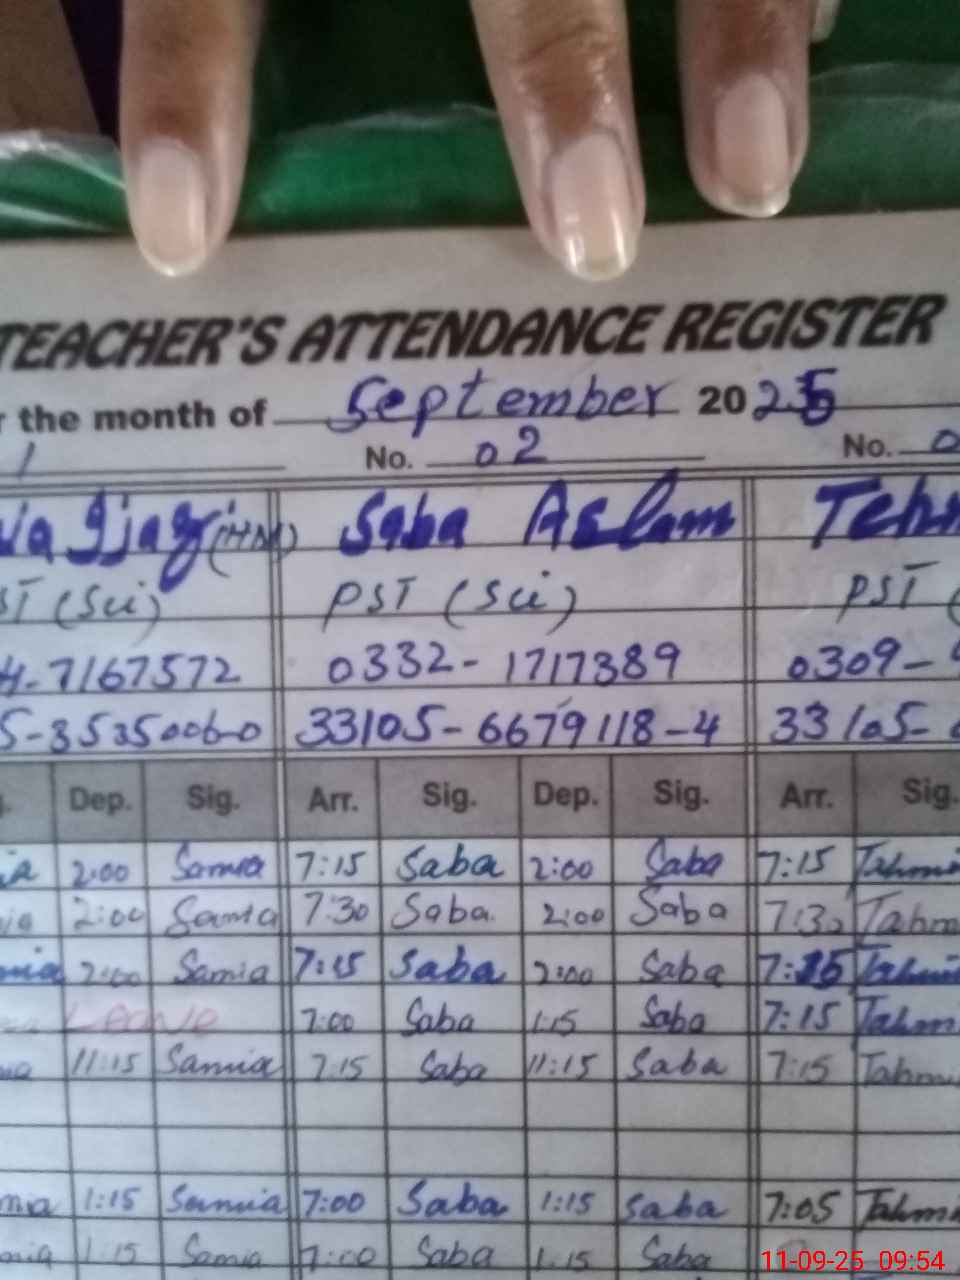 TEACHER'S ATTENDANCE REGISTER
the month of September 2025
1 No. 02 No. 0
(HM) Saba Aslam
(Sci) PST (Sci) PST (
4-7167572 0332-1717389 0309-
5-3535006-0 33105-6679118-4 33105-
Dep. Sig. Arr. Sig. Dep. Sig. Arr. Sig.
2:00 Samia 7:15 Saba 2:00 Saba 7:15 Tahmi
2:00 Samia 7:30 Saba 2:00 Saba 7:30 Tahm
mia 2:00 Samia 7:15 Saba 2:00 Saba 7:15 Tahmi
Leave 7:00 Saba 1:15 Saba 7:15 Tahmi
11:15 Samia 7:15 Saba 11:15 Saba 7:15 Tahmi
mia 1:15 Samia 7:00 Saba 1:15 Saba 7:05 Tahmi
mia 1:15 Samia 7:00 Saba 1:15 Saba
11-09-25 09:54